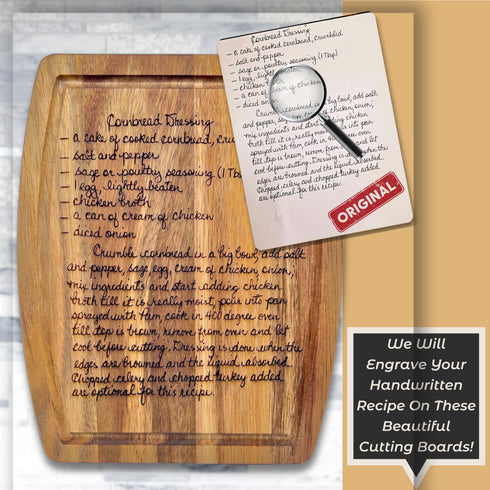 Cornbread Dressing
- a cake of cooked cornbread, cru
- salt and pepper
- sage or poultry seasoning (1 Tbs
- 1 egg, lightly beaten
- chicken broth
- a can of cream of chicken
- diced onion
Crumble cornbread in a big bowl, add salt
and pepper, sage, egg, cream of chicken, onion,
mix ingredients and start adding chicken
broth till it is really moist, pour into pan
sprayed with Pam, cook in 400 degree oven
till top is brown, remove from oven and let
cool before cutting. Dressing is done when the
edges are browned and the liquid absorbed.
Chopped celery and chopped turkey added
are optional for this recipe.
Cornbread Dressing
- a cake of cooked cornbread, crumbled
- salt and pepper
- sage or poultry seasoning (1 Tbsp)
- 1 egg, lightly
- chicken
- a can of cream of chicken
- diced onion
Crumble cornbread in a big bowl, add salt
and pepper, sage, egg, cream of chicken, onion,
mix ingredients and start adding chicken
broth till it is really moist, pour into pan
sprayed with Pam, cook in 400 degree oven
till top is brown, remove from oven and let
cool before cutting. Dressing is done when the
edges are browned and the liquid absorbed.
Chopped celery and chopped turkey added
are optional for this recipe.
ORIGINAL
We Will
Engrave Your
Handwritten
Recipe On These
Beautiful
Cutting Boards!